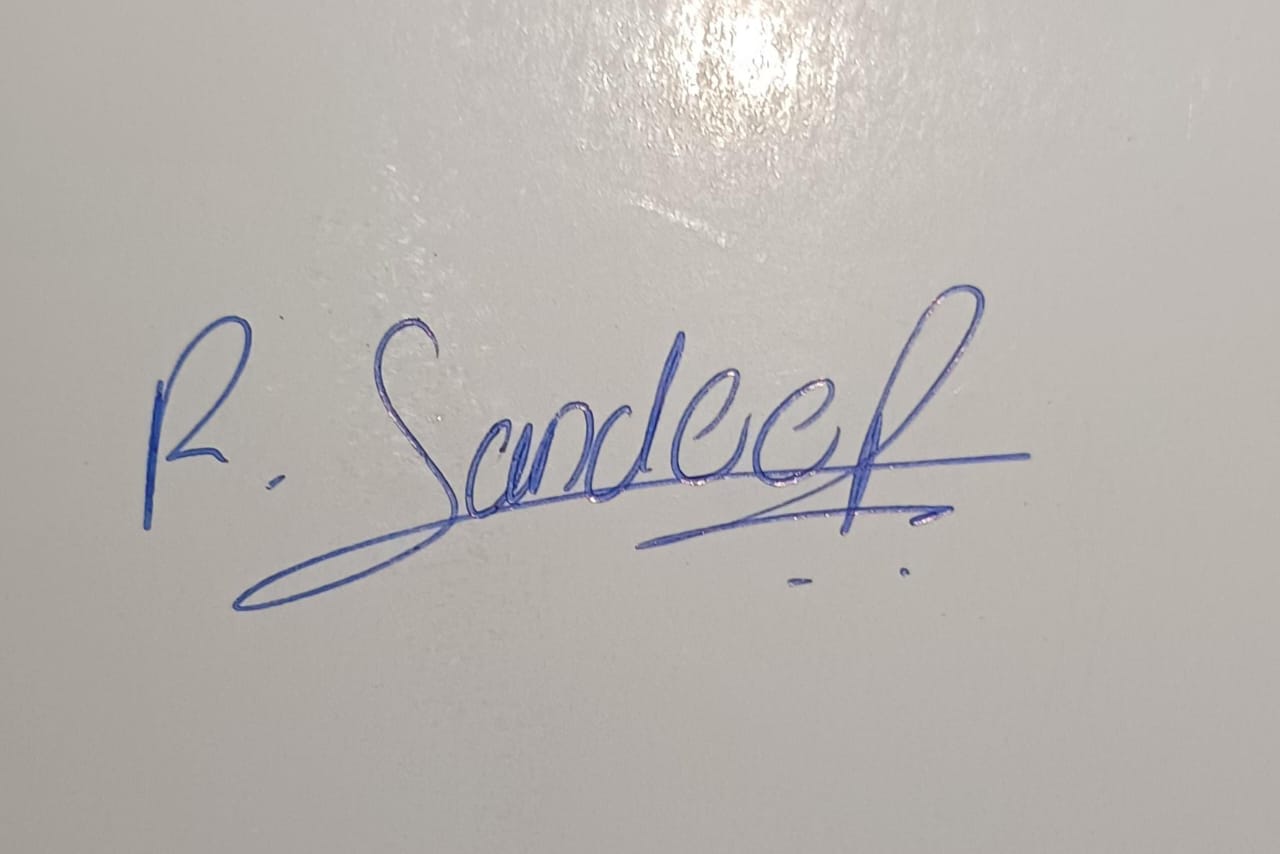 R. Sandeep